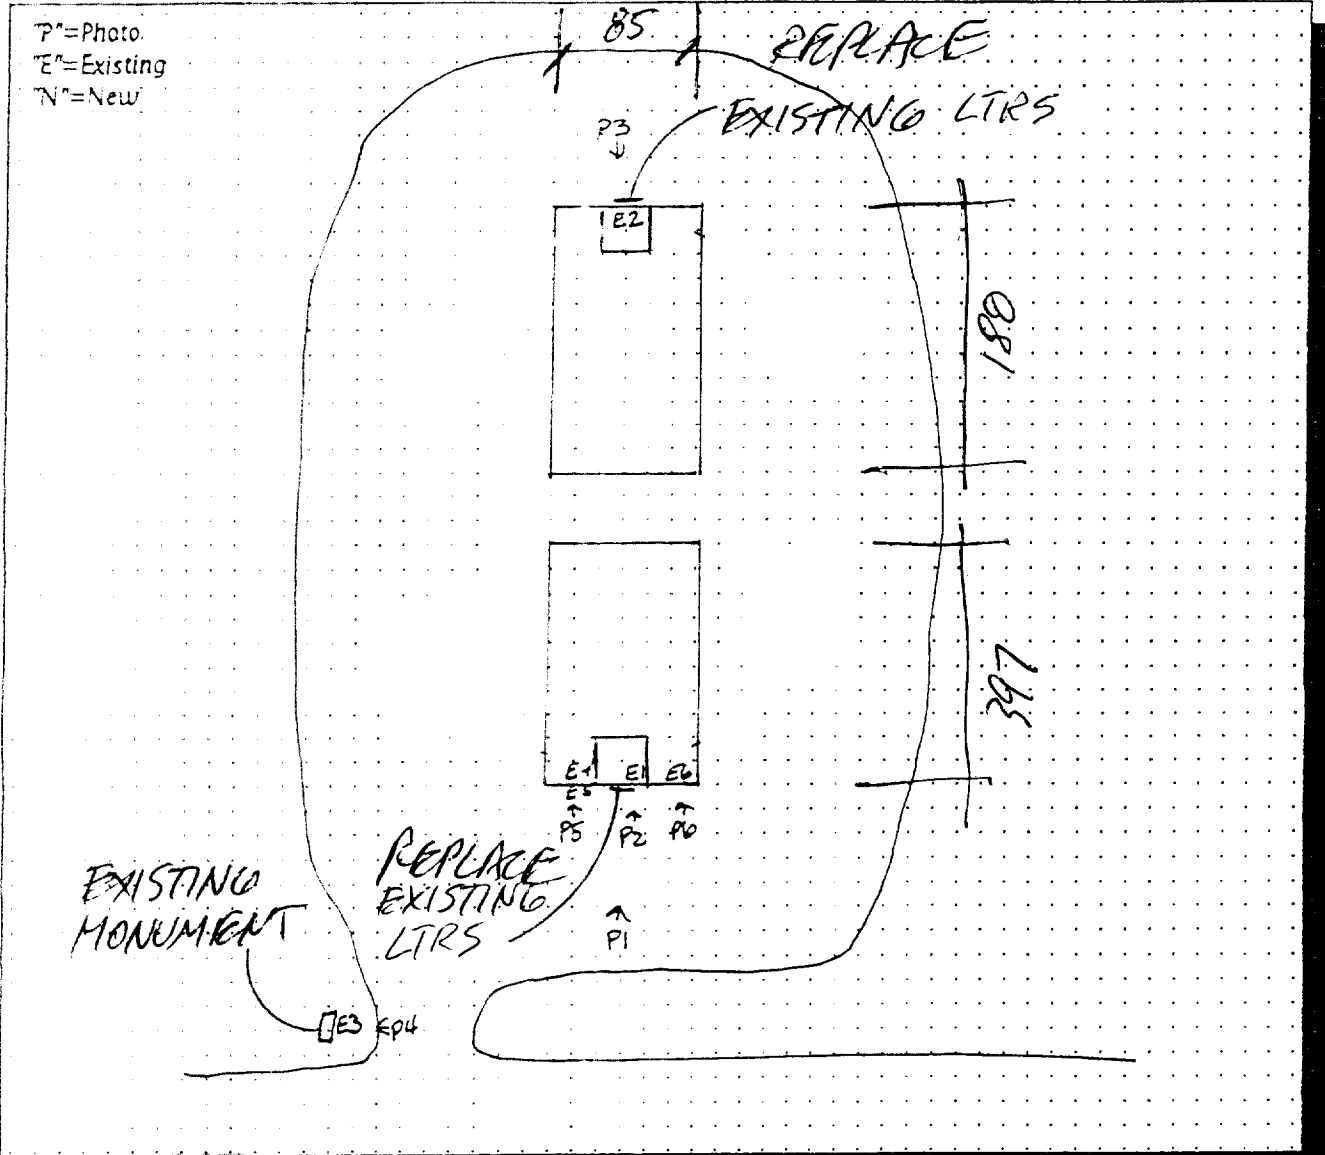 "P"=Photo
"E"=Existing
"N"=New
85
REPLACE
EXISTING LTRS
P3
E2
180
397
E4 E1 E6
E5
P5 P2 P6
REPLACE
EXISTING
LTRS
EXISTING
MONUMENT
P1
E3 P4